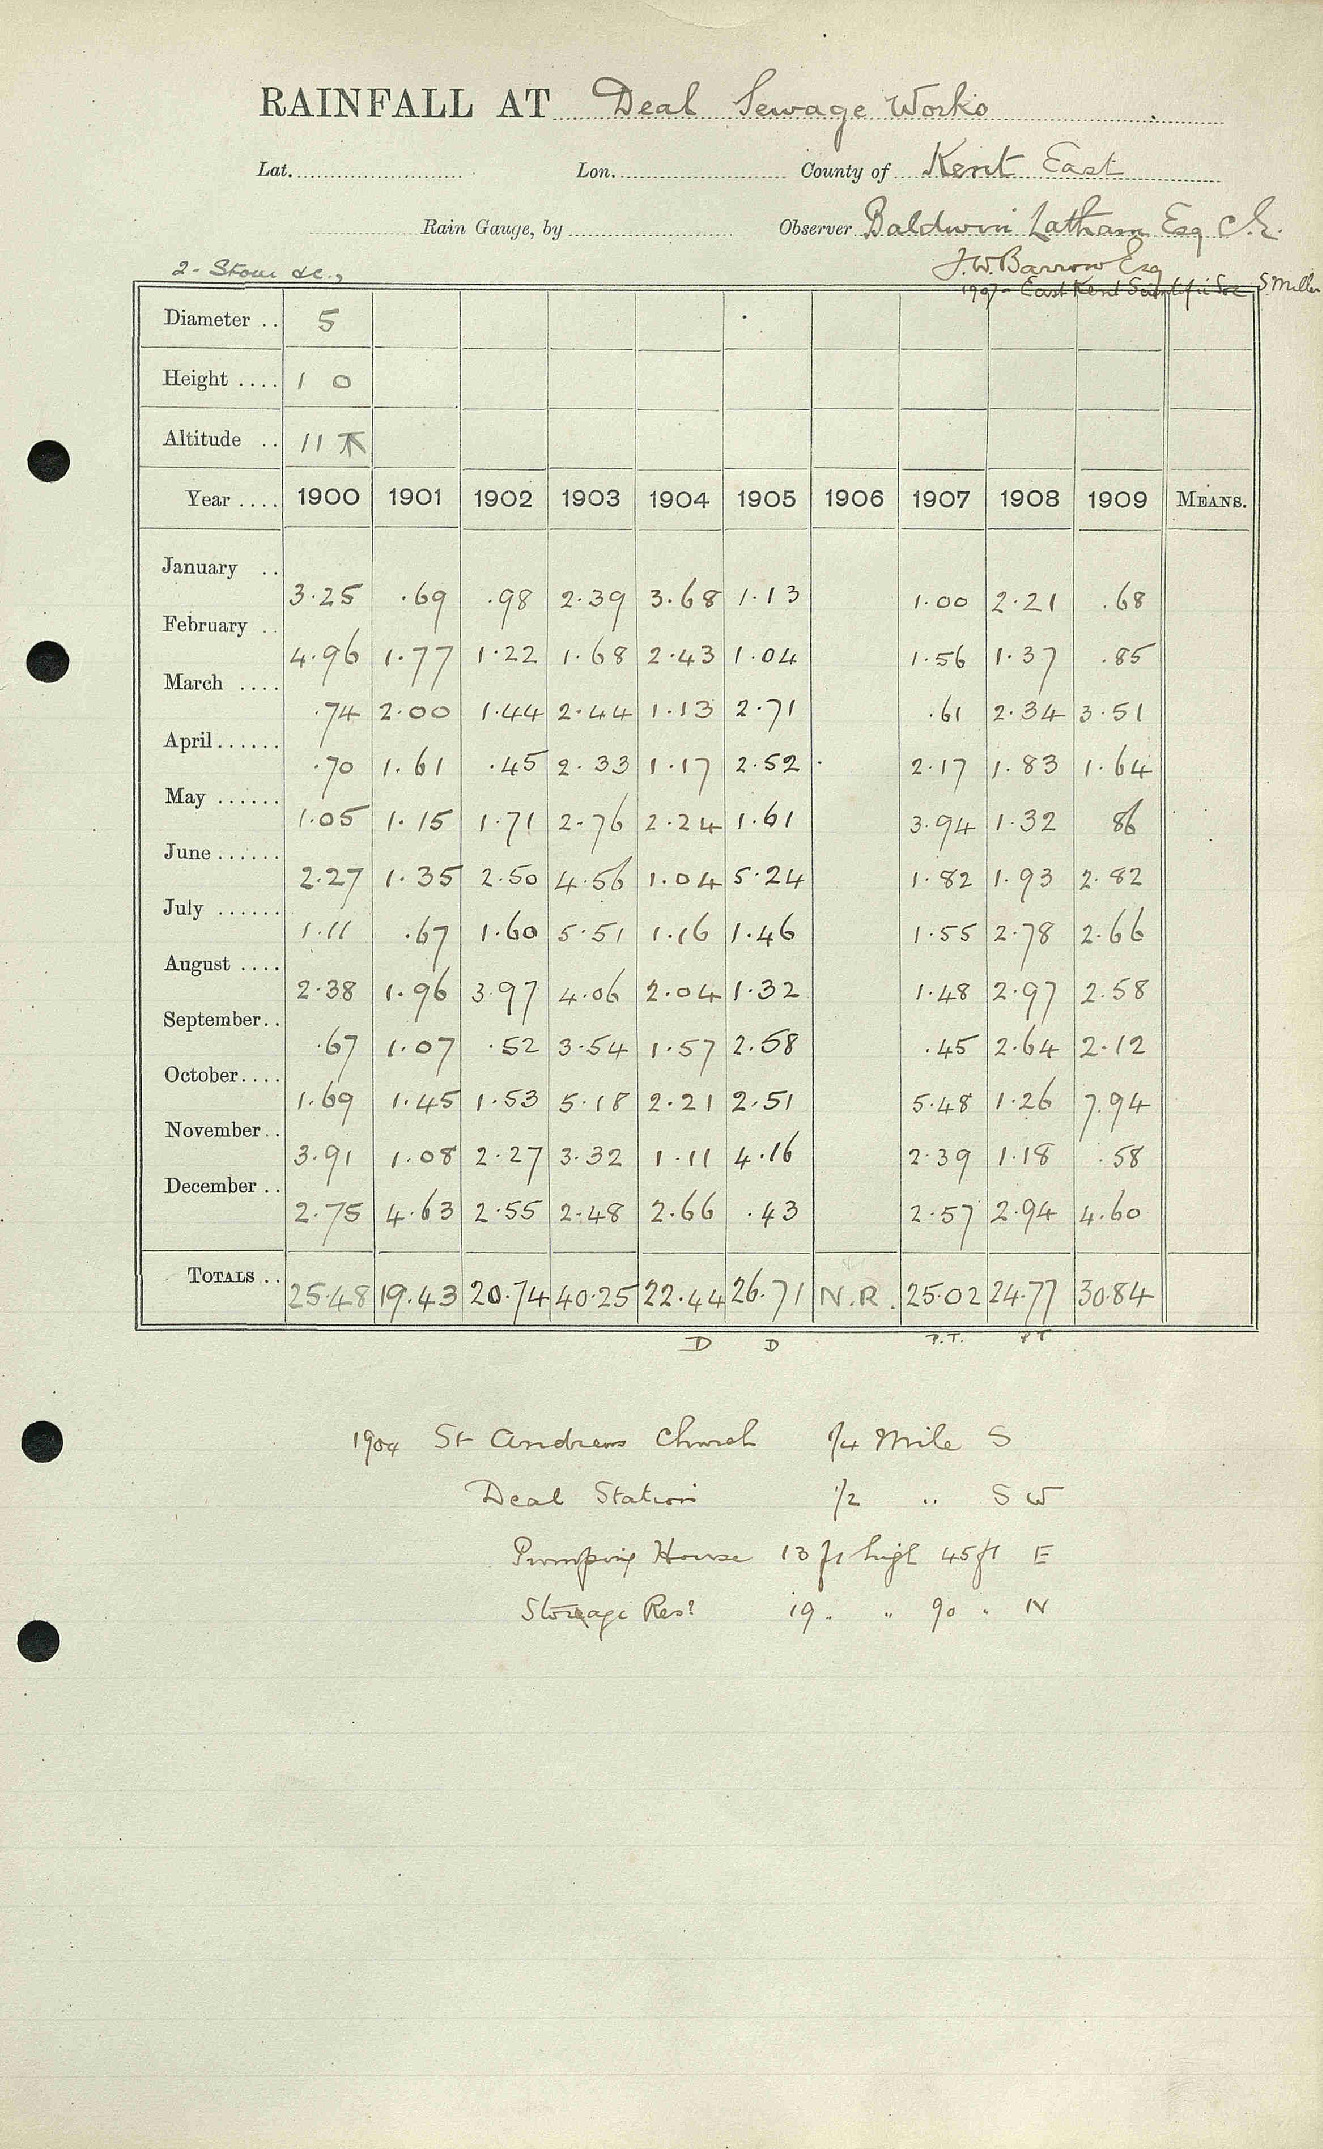 RAINFALL AT Deal Sewage Works
Lat. Lon. County of Kent East
Rain Gauge, by Observer Baldwin Latham Esq C.E.
2 - Stour &c., J.W. Barrow Esq
1907 - East Kent Scientific Soc S Miller
Diameter .. 5
Height .... 1 0
Altitude .. 11
Year .... 1900 1901 1902 1903 1904 1905 1906 1907 1908 1909 MEANS.
January .. 3.25 .69 .98 2.39 3.68 1.13 1.00 2.21 .68
February .. 4.96 1.77 1.22 1.68 2.43 1.04 1.56 1.37 .85
March .... .74 2.00 1.44 2.44 1.13 2.71 .61 2.34 3.51
April...... .70 1.61 .45 2.33 1.17 2.52 2.17 1.83 1.64
May ...... 1.05 1.15 1.71 2.76 2.24 1.61 3.94 1.32 86
June ...... 2.27 1.35 2.50 4.56 1.04 5.24 1.82 1.93 2.82
July ...... 1.11 .67 1.60 5.51 1.16 1.46 1.55 2.78 2.66
August .... 2.38 1.96 3.97 4.06 2.04 1.32 1.48 2.97 2.58
September.. .67 1.07 .52 3.54 1.57 2.58 .45 2.64 2.12
October.... 1.69 1.45 1.53 5.18 2.21 2.51 5.48 1.26 7.94
November.. 3.91 1.08 2.27 3.32 1.11 4.16 2.39 1.18 .58
December .. 2.75 4.63 2.55 2.48 2.66 .43 2.57 2.94 4.60
TOTALS .. 25.48 19.43 20.74 40.25 22.44 26.71 N.R. 25.02 24.77 30.84
D D P.T. PT
1904 St Andrews Church 1/4 Mile S
Deal Station 1/2 " S W
Pumping House 13 ft high 45 ft E
Storage Resr 19 " " 90 " N